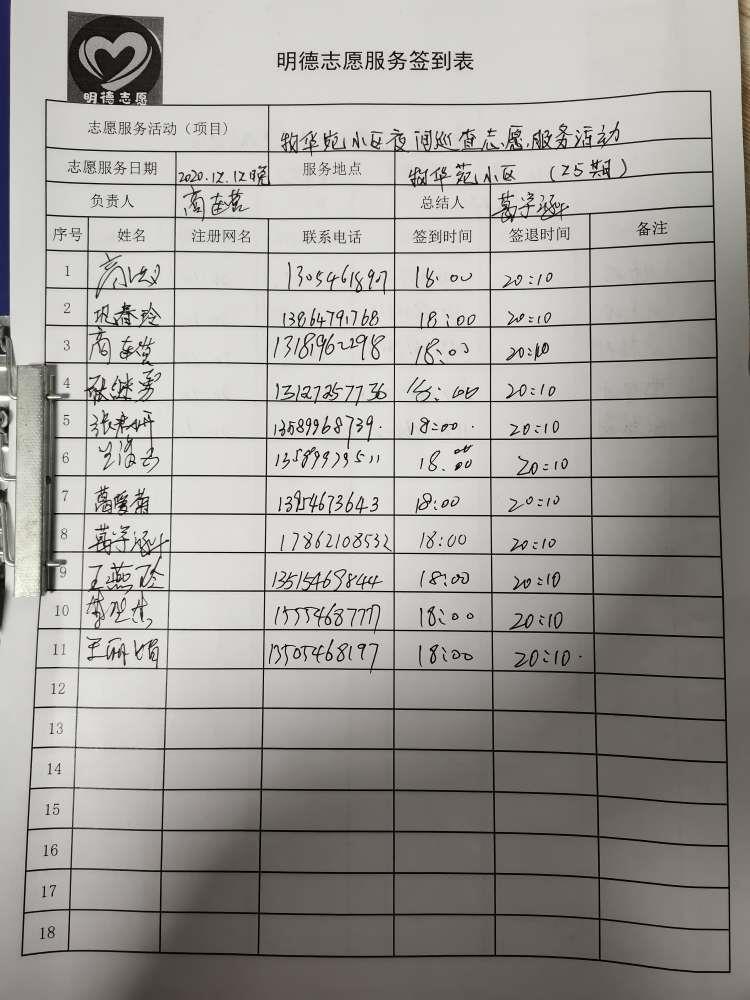 明德志愿
明德志愿服务签到表
志愿服务活动（项目） 物华苑小区夜间巡查志愿服务活动
志愿服务日期 2020.12.12晚 服务地点 物华苑小区（25期）
负责人 商连营 总结人
序号 姓名 注册网名 联系电话 签到时间 签退时间 备注
1 18:00 20:10
2 巩春玲 13864791768 18:00 20:10
3 商连营 13181962298 18:00 20:10
4 耿继勇 13127257736 18:00 20:10
5 13589968739 18:00 20:10
6 18:00 20:10
7 葛爱菊 13954673643 18:00 20:10
8 17862108532 18:00 20:10
9 王燕玲 13515469844 18:00 20:10
10 15554687777 18:00 20:10
11 王丽娟 13505468197 18:00 20:10
12
13
14
15
16
17
18